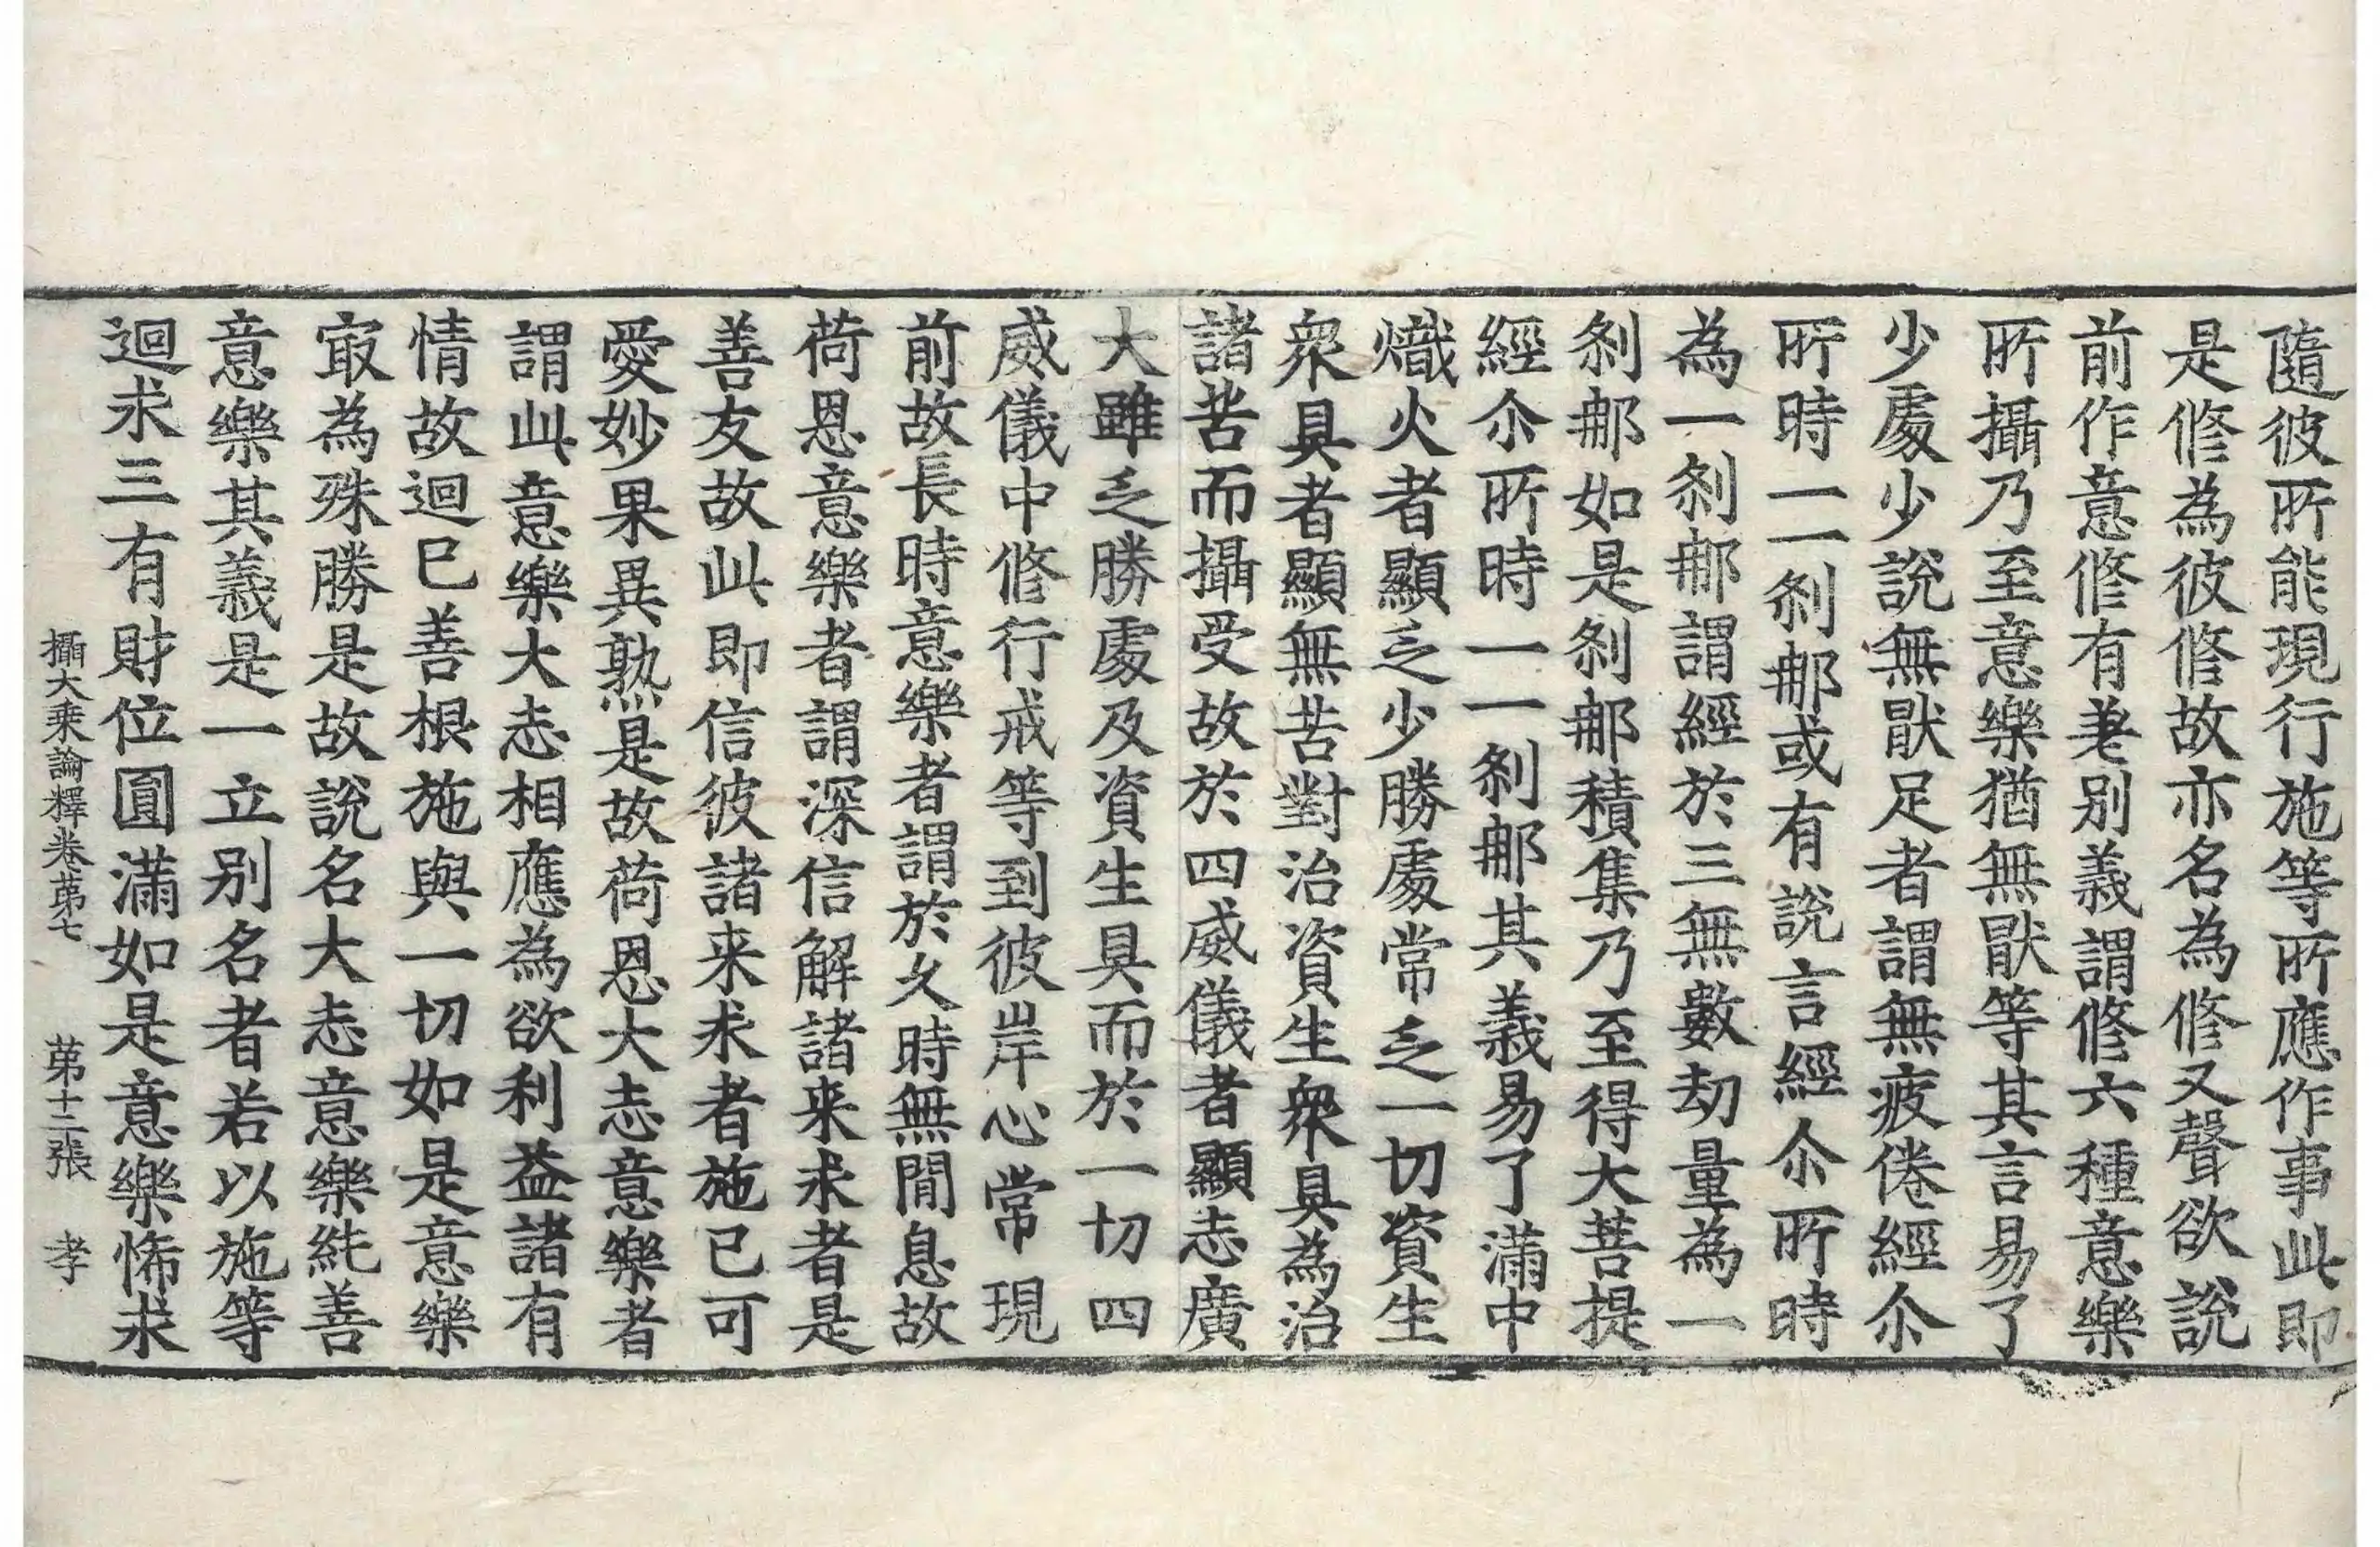 隨彼所能現行施等所應作事此即
是修為彼修故亦名為修又聲欲說
前作意修有差别義謂修六種意樂
所攝乃至意樂猶無猒等其言易了
少處少說無猒足者謂無疲倦經尒
所時一一刹那或有說言經尒所時
為一刹那謂經於三無數劫量為一
刹那如是刹那積集乃至得大菩提
經尒所時一一刹那其義易了滿中
熾火者顯乏少勝處常乏一切資生
衆具者顯無苦對治資生衆具為治
諸苦而攝受故於四威儀者顯志廣
大雖乏勝處及資生具而於一切四
威儀中修行戒等到彼岸心常現
前故長時意樂者謂於久時無間息故
荷恩意樂者謂深信解諸来求者是
善友故此即信彼諸来求者施已可
愛妙果異熟是故荷恩大志意樂者
謂此意樂大志相應為欲利益諸有
情故迴巳善根施與一切如是意樂
㝡為殊勝是故說名大志意樂純善
意樂其義是一立别名者若以施等
迴求三有財位圓滿如是意樂怖求
攝大乘論釋卷苐七 苐十二張 孝